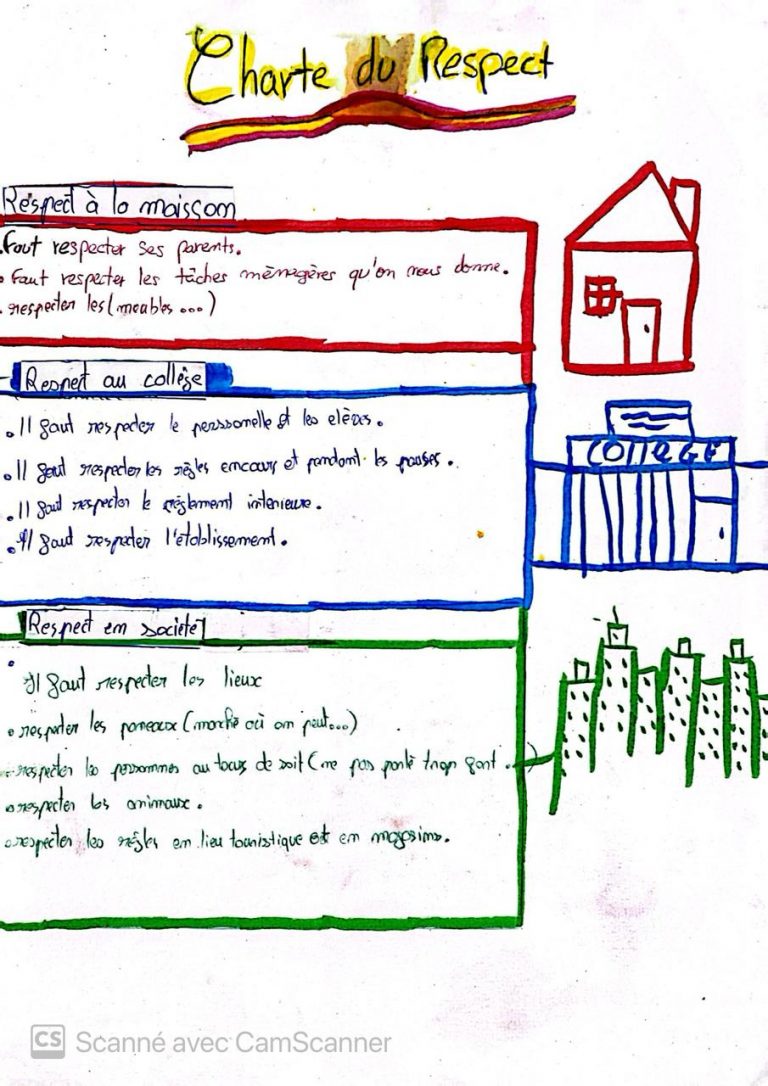 Charte du Respect
Respect à la maisom
. Faut respecter ses parents.
. Faut respecter les tâches ménagères qu'on nous donne.
. respecter les (meubles...)
Respect au collège
. Il faut respecter le perssonelle et les elèves.
. Il faut respecter les règles en cours et pendant les pauses.
. Il faut respecter le règlement interieure.
. Il faut respecter l'établissement.
COllEGE
Respect en societé
. Il faut respecter les lieux
. respecter les panneaux (marche où on peut...)
. respecter les personnes autour de soit (ne pas parlé trop fort...)
. respecter les animaux.
. respecter les règles en lieu touristique et en magasins.
CS Scanné avec CamScanner